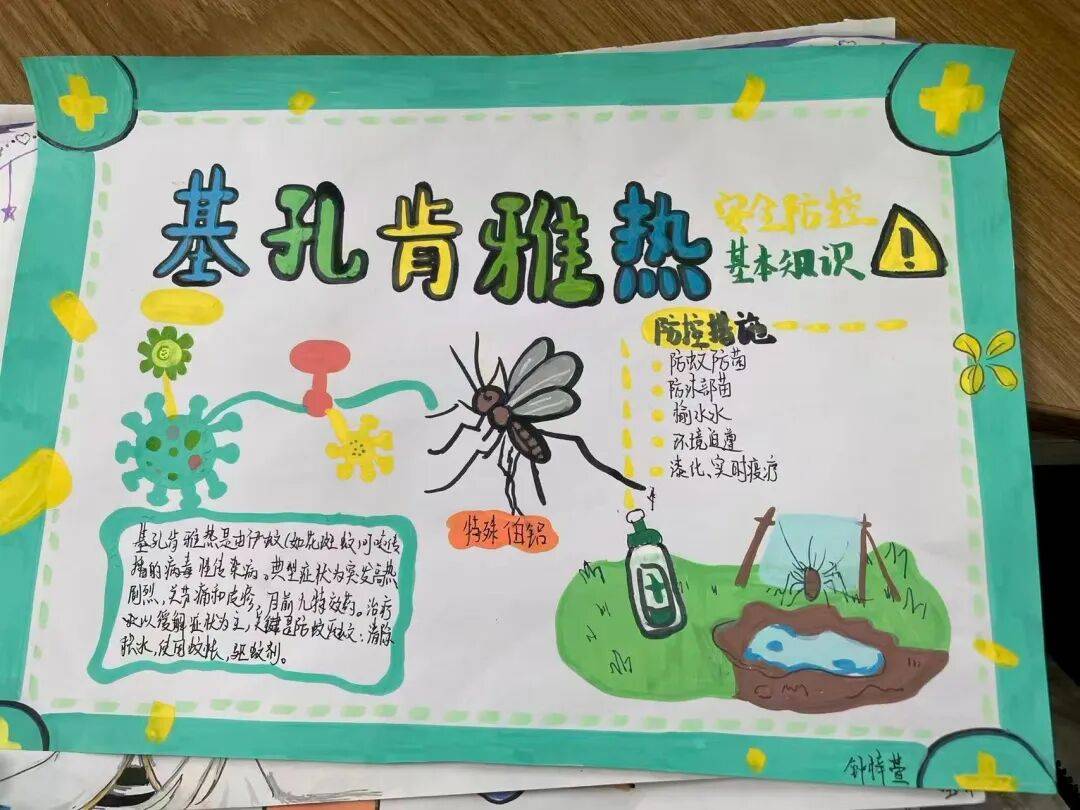 基孔肯雅热
安全防控
基本知识
防控措施
防蚊防菌
防水部苗
愉水水
环境自遵
漆化、实时疫疗
特殊伯铝
基孔肯雅热是由伊蚊(如花斑蚊)叮咬传
播的病毒性传染病。典型症状为突发高热
剧烈,关节痛和皮疹,目前九特效药。治疗
以缓解症状为主,关键是防蚊灭蚊:清除
积水,使用蚊帐,驱蚊剂。
钟梓萱